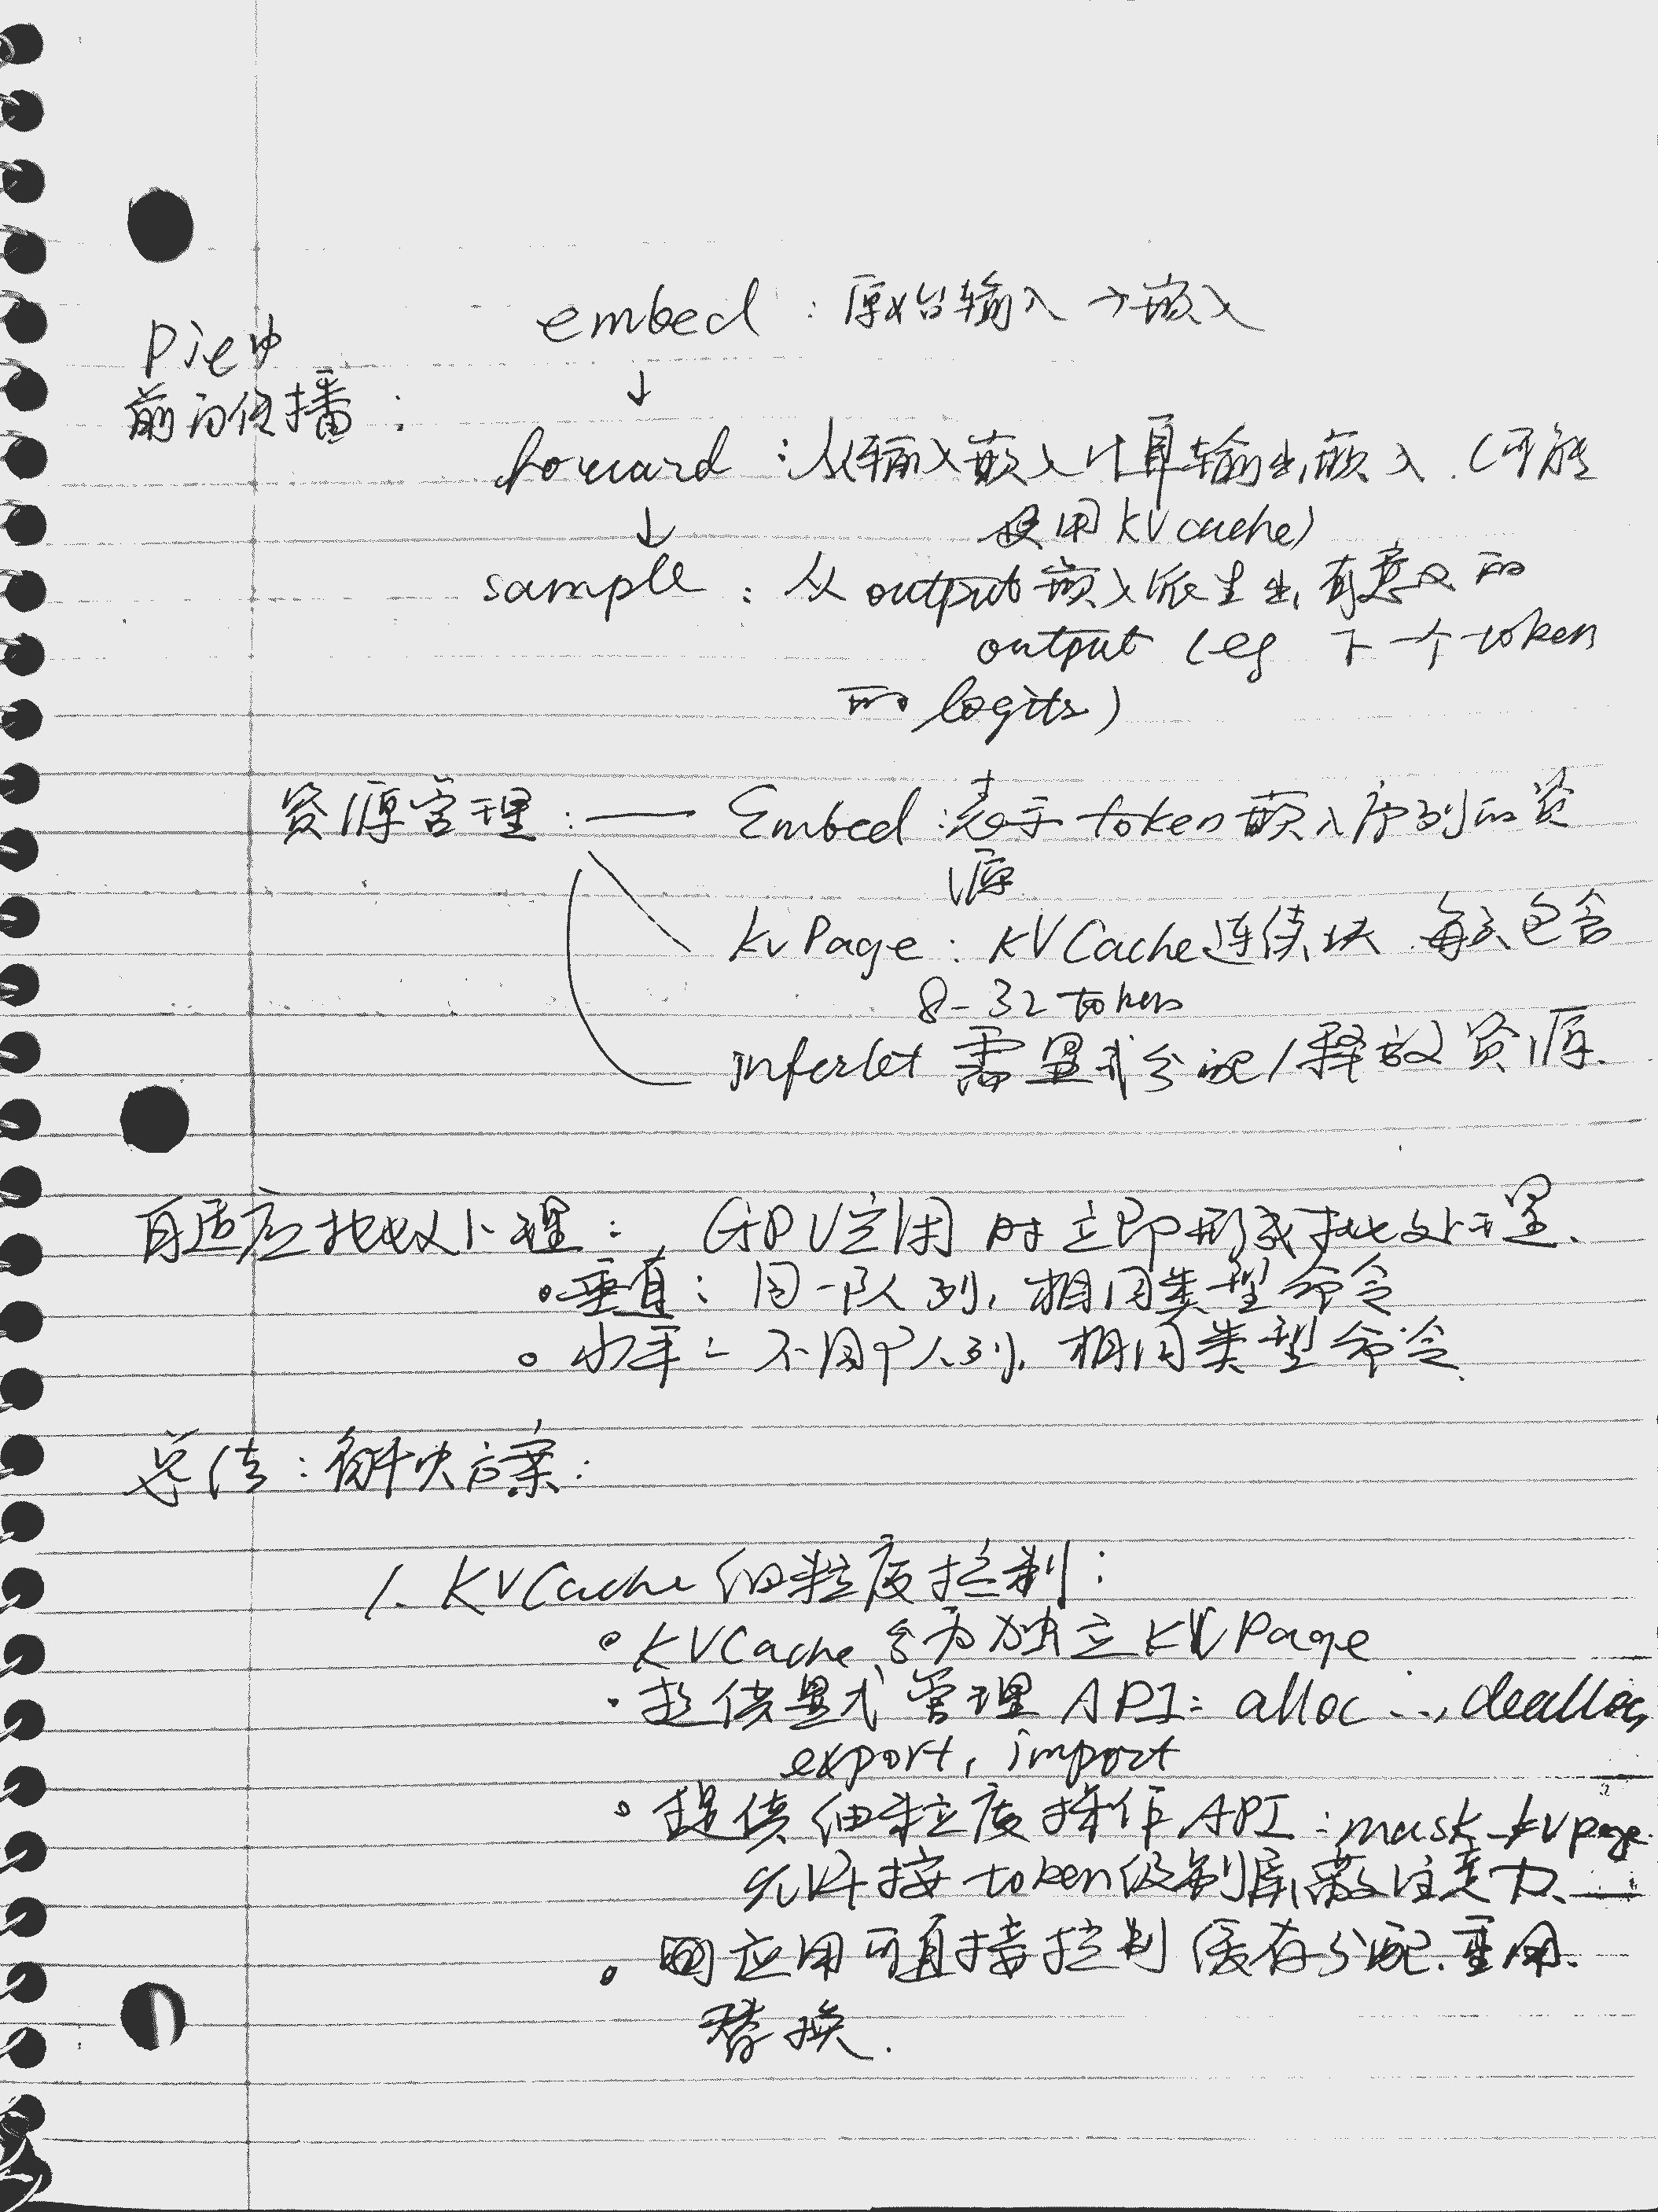 embed : 原始输入 → 嵌入
Pie中
前向传播 :
↓
forward : 从输入嵌入计算输出嵌入. (可能
使用 KV cache)
↓
sample : 从 output 嵌入派生出有意义的
output (eg 下一个 token
的 logits)
资源管理 : — Embed : 表示 token 嵌入序列的资
源
Kv Page : KV Cache 连续块 每块包含
8-32 token
inferlet 需显式分配/释放资源.
自适应批处理 : GPU空闲时立即形成批处理.
◦ 垂直 : 同一队列, 相同类型命令
◦ 水平 : 不同队列, 相同类型命令.
总结 : 解决方案 :
1. KVCache 细粒度控制 :
◦ KVCache 分为独立 KV Page
· 提供显式管理 API : alloc ..., dealloc,
export, import
◦ 提供细粒度操作 API : mask_kvpage
允许按 token 级别屏蔽注意力.
◦ 应用可直接控制缓存分配.重用.
替换.